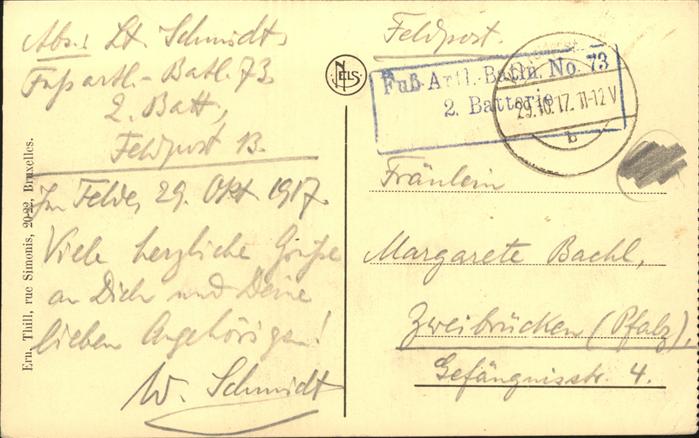 Abs.: Lt. Schmidt,
Fußartl.-Batl. 73
2. Batt,
Feldpost 13.
Im Felde, 29. Okt 1917.
Viele herzliche Grüße
an Dich und Deine
lieben Angehörigen!
W. Schmidt
Ern. Thill, rue Simonis, 20-22, Bruxelles.
NELS
Feldpost.
Fuß-Artl.-Batln. No. 73
2. Batterie
29.10.17. 11-12 V
b
Fräulein
Margarete Bachl,
Zweibrücken (Pfalz),
Gefängnisstr. 4.